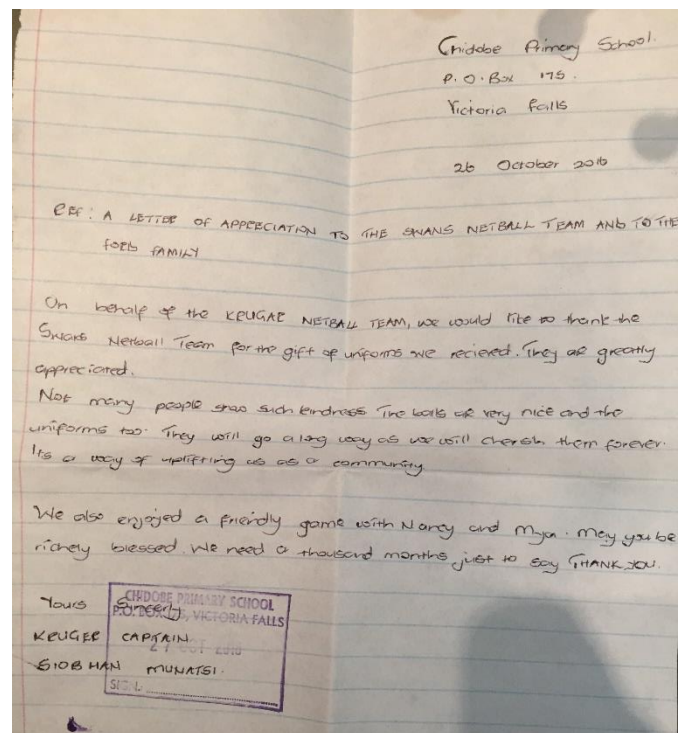 Chidobe Primary School.
P.O. Box 175.
Victoria Falls
26 October 2016
REF: A LETTER OF APPRECIATION TO THE SWANS NETBALL TEAM AND TO THE
FORD FAMILY
On behalf of the KRUGAR NETBALL TEAM, we would like to thank the
Swans Netball Team for the gift of uniforms we recieved. They are greatly
appreciated.
Not many people show such kindness The balls are very nice and the
uniforms too. They will go a long way as we will cherish them forever.
Its a way of uplifting us as a community
We also enjoyed a friendly game with Nancy and Mya. May you be
richely blessed. We need a thousand months just to say THANK YOU.
Yours Sincerly
KRUGER CAPTAIN
SIOBHAN MUNATSI.
CHIDOBE PRIMARY SCHOOL
P.O. BOX 175, VICTORIA FALLS
OCT 2016